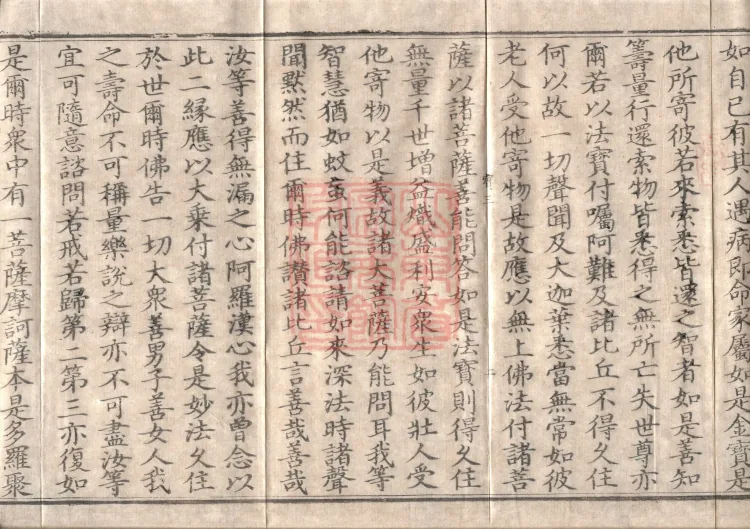 如自已有其人遇病即命家屬如是金寶是
他所寄彼若來索悉皆還之智者如是善知
籌量行還索物皆悉得之無所亡失世尊亦
爾若以法寶付囑阿難及諸比丘不得久住
何以故一切聲聞及大迦葉悉當無常如彼
老人受他寄物是故應以無上佛法付諸菩
薩以諸菩薩善能問答如是法寶則得久住
無量千世增益熾盛利安衆生如彼壯人受
他寄物以是義故諸大菩薩乃能問耳我等
智慧猶如蚊䖟何能諮請如來深法時諸聲
聞默然而住爾時佛讚諸比丘言善哉善哉
汝等善得無漏之心阿羅漢心我亦曾念以
此二緣應以大乘付諸菩薩令是妙法久住
於世爾時佛告一切大衆善男子善女人我
之壽命不可稱量樂說之辯亦不可盡汝等
宜可隨意諮問若戒若歸第二第三亦復如
是爾時衆中有一菩薩摩訶薩本是多羅聚